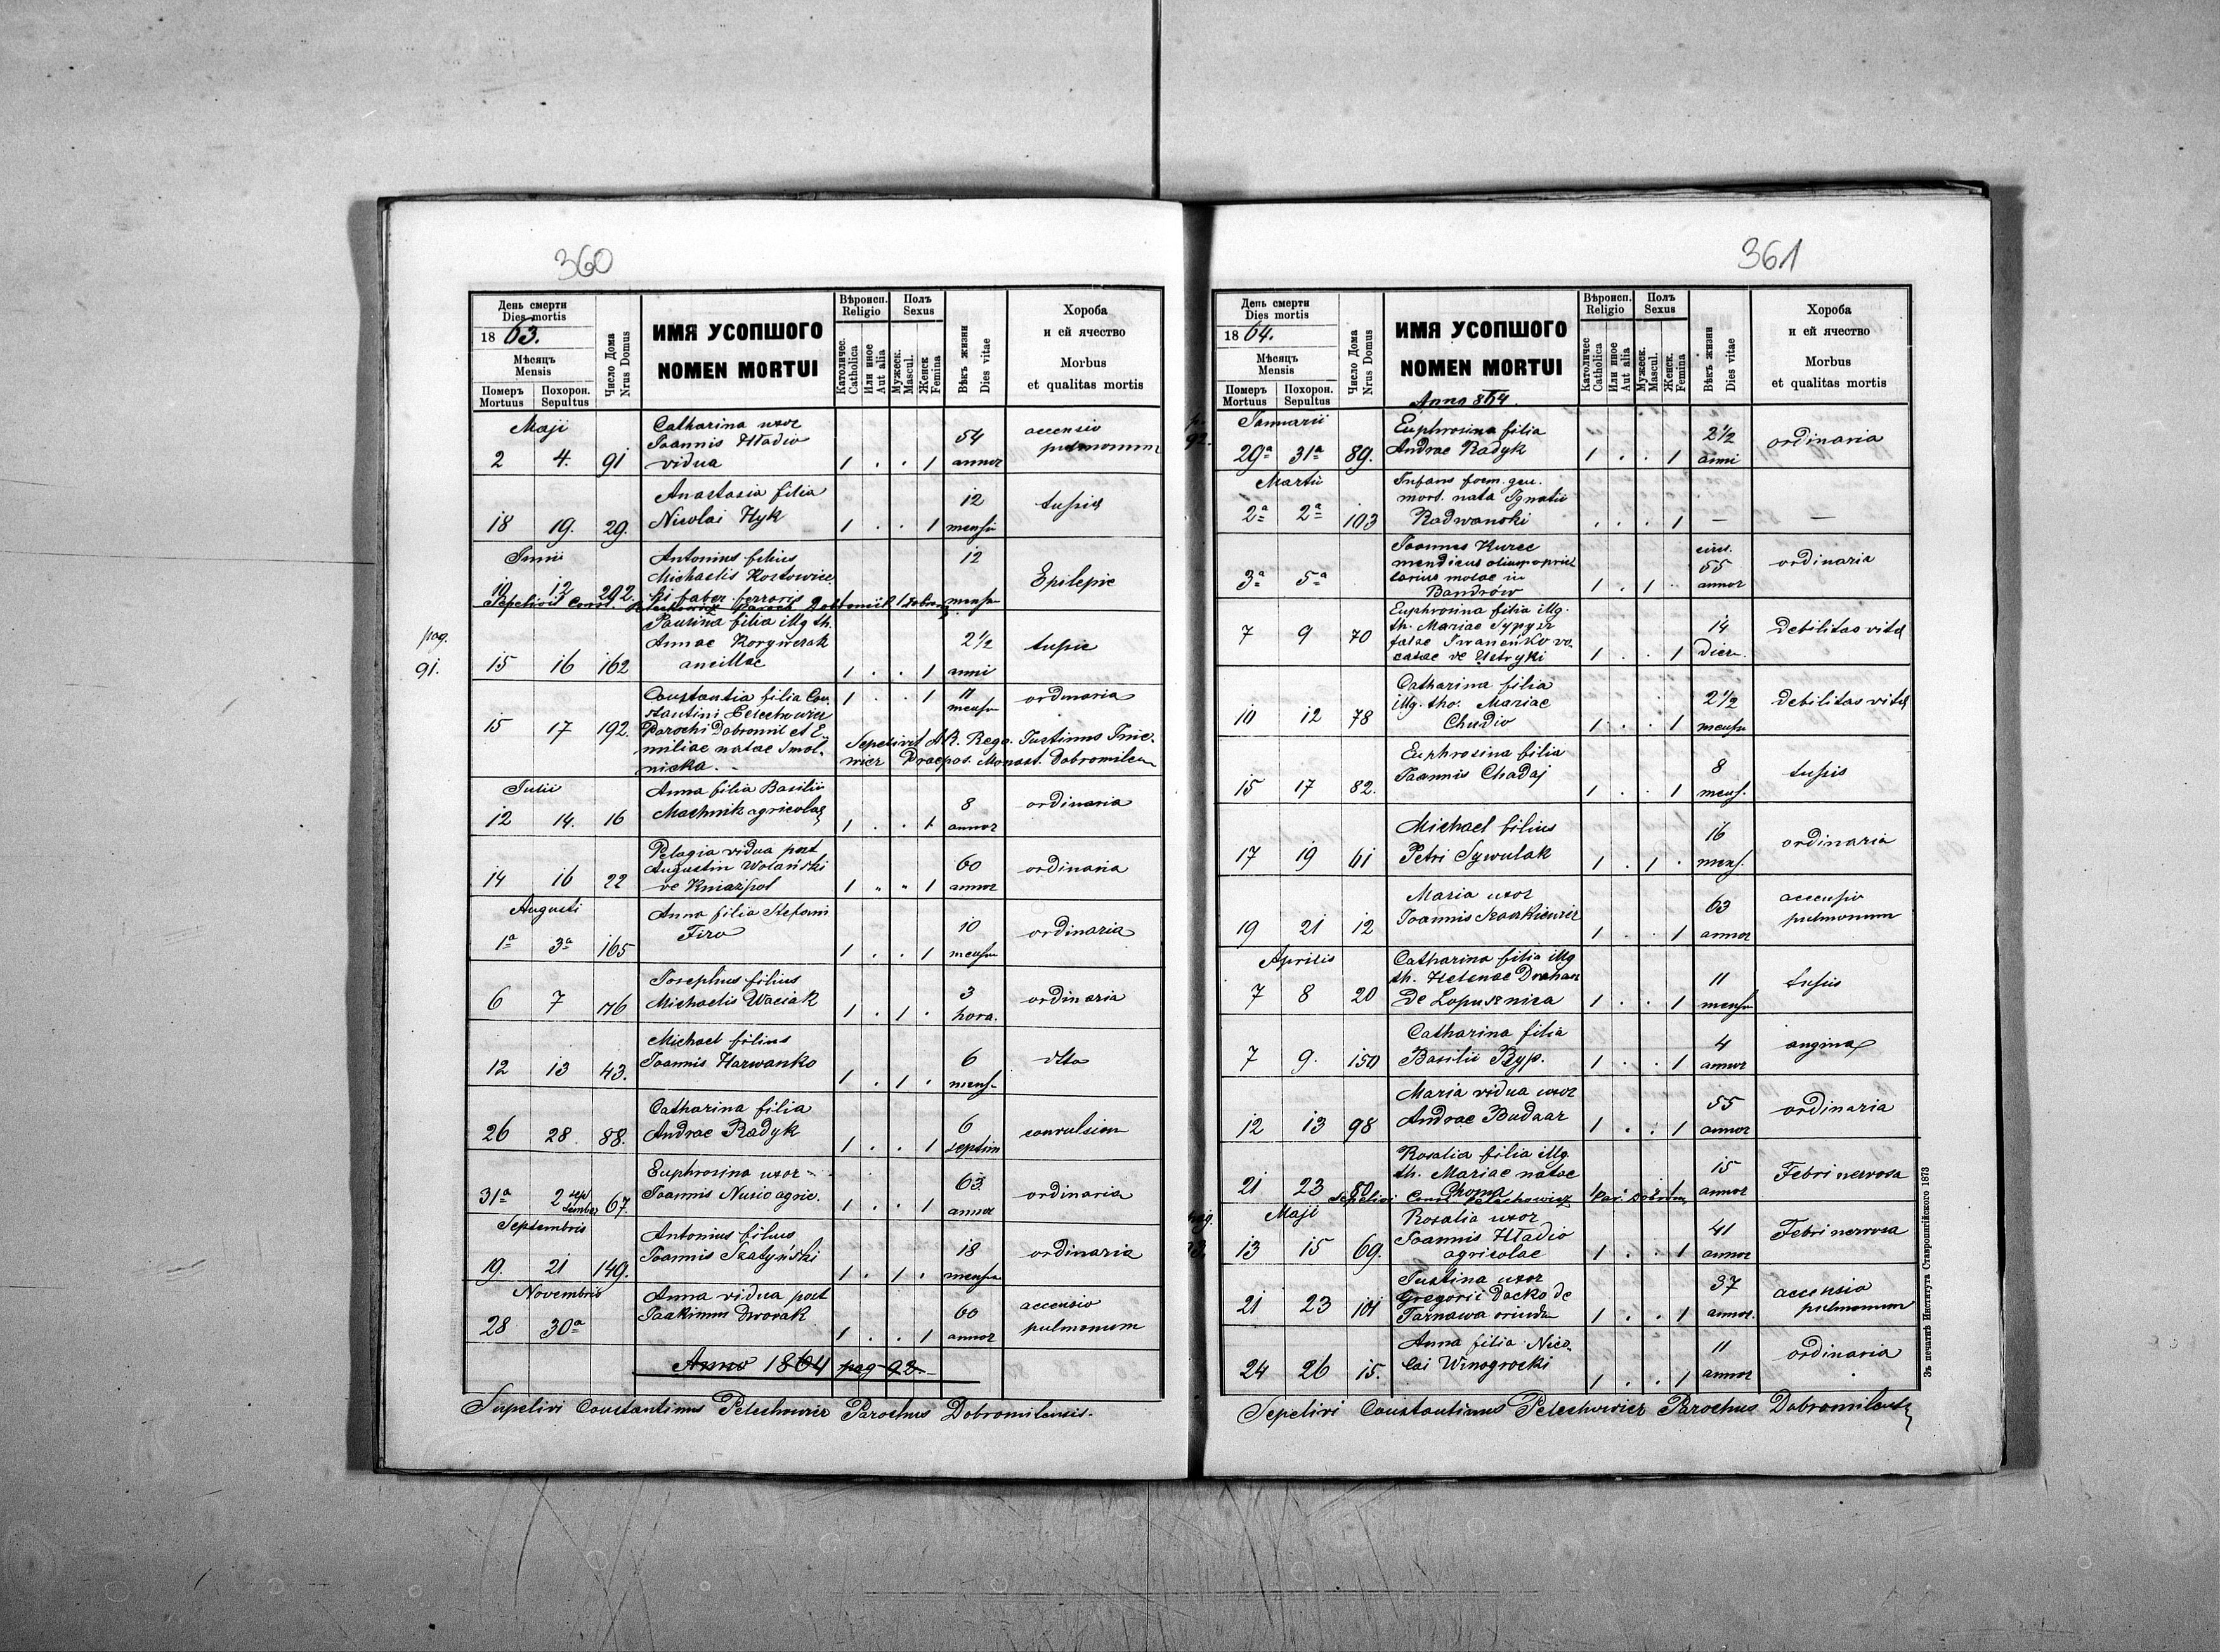 360
День смерти
Dies mortis
1863.
Мѣсяцъ
Mensis
Померъ
Mortuus
Похорон.
Sepultus
Число Дома
Nrus Domus
ИМЯ УСОПШОГО
NOMEN MORTUI
Вѣроисп.
Religio
Католичес.
Catholica
Или иное
Aut alia
Полъ
Sexus
Мужеск.
Mascul.
Женск
Femina
Вѣкъ жизни
Dies vitae
Хороба
и ей ячество
Morbus
et qualitas mortis
Maji
2 4. 91 Catharina uxor
Joannis Hładio
vidua 1 . . 1 54 annor accensio
pulmonum
18 19. 29. Anastasia filia
Nicolai Hyk 1 . . 1 12 mensu tussis
Junii
10 12 292. Antonius filius
Michaelis Kostowiec
ki faber ferraris 12 mensu Epilepie
Sepelivit Const. Petechowicz Paroch Dobromil
pag.
91.
15 16 162 Paulina filia illg th.
Annae Korywczak
ancillae 1 . . 1 2 1/2 anni tussis
15 17 192. Constantia filia Con
stantini Petechowicz
Parochi Dobromil et E
miliae natae Smol-
nicka. 1 . . 1 11 mensu ordinaria
Sepelivit A.R. Rega. Justinus
Praepos. Monast. Dobromilen
Julii
12 14. 16 Anna filia Basilii
Machnik agricolae 1 . . 1 8 annor ordinaria
14 16 22 Pelagia vidua post
Augustin Wolański
de Kniażpol 1 " " 1 60 annor ordinaria
Augusti
1a 3a 165 Anna filia Stefani
Firo 1 . . 1 10 mensu ordinaria
6 7 176 Josephus filius
Michaelis Waciak 1 . 1 . 3 hora. ordinaria
12 13 43. Michael filius
Joannis Harwanko 1 . 1 . 6 mens. dtto
26 28. 88. Catharina filia
Andrae Radyk 1 . . 1 6 septim convulsion
31a 2 september 67. Euphrosina uxor
Joannis Nusio agric. 1 . . 1 63 annor ordinaria
Septembris
19. 21 149. Antonius filius
Joannis Szatyński 1 . 1 . 18 mensu ordinaria
Novembris
28 30a Anna vidua post
Joakimum Dworak 1 . . 1 60 annor accensio
pulmonum
Anno 1864 pag 92
Sepelivi Constantinus Petechowicz Parochus Dobromilensis.
361
День смерти
Dies mortis
1864.
Мѣсяцъ
Mensis
Померъ
Mortuus
Похорон.
Sepultus
Число Дома
Nrus Domus
ИМЯ УСОПШОГО
NOMEN MORTUI
Вѣроисп.
Religio
Католичес
Catholica
Или иное
Aut alia
Полъ
Sexus
Мужеск.
Mascul.
Женск.
Femina
Вѣкъ жизни
Dies vitae
Хороба
и ей ячество
Morbus
et qualitas mortis
Anno 864.
p.
92.
Januarii
29a 31a 89. Euphrosina filia
Andrae Radyk 1 . . 1 2 1/2 anni ordinaria
Martii
2a 2a 103 Infans foem. gen.
mort. nata Ignatii
Radwanski . . . 1 — —
3a 5a Joannes Kurec
mendicus olim propriet
tarius molae in
Bandrów 1 . 1 circ. 55 annor ordinaria
7 9 70 Euphrosina filia illg.
th. Mariae Sypyer
falae Iwaneńko vo-
catae de Ustryki 1 . . 1 14 dier. Debilitas vitae
10 12 78 Catharina filia
illg. tho. Mariae
Chudio 1 . . 1 2 1/2 mensu debilitas vitae
15 17 82. Euphrosina filia
Joannis Chadaj 1 . . 1 8 mens. tussis
17 19 61 Michael filius
Petri Sywulak 1 . 1 . 16 mens. ordinaria
19 21 12 Maria uxor
Joannis 1 . . 1 63 annor accensio
pulmonum
Aprilis
7 8 20 Catharina filia illg
th. Helenae Drahan
de Lopusznica 1 . . 1 11 mensu tussis
7 9. 150 Catharina filia
Basilii Byp. 1 . . 1 4 annor angina
12 13 98 Maria vidua uxor
Andrae Budzar 1 . . 1 55 annor ordinaria
21 23 80 Rosalia filia illg
th. Mariae natae
Choma 1 1 15 annor Febri nervosa
Sepelivi Const Petechowicz Par. Dobrom
pag.
93.
Maji
13 15 69. Rosalia uxor
Joannis Hładio
agricolae 1 . . 1 41 annor Febri nervosa
21 23 101 Justina uxor
Gregorii Dacko de
Tarnawa oriunda 1 . . 1 37 annor. accensio
pulmonum
24 26 15. Anna filia Nico-
lai Winogrocki 1 . . 1 11 annor ordinaria
Sepelivi Constantinus Petechowicz Parochus Dobromilens
Зъ печатнѣ Института Ставропигійского 1873